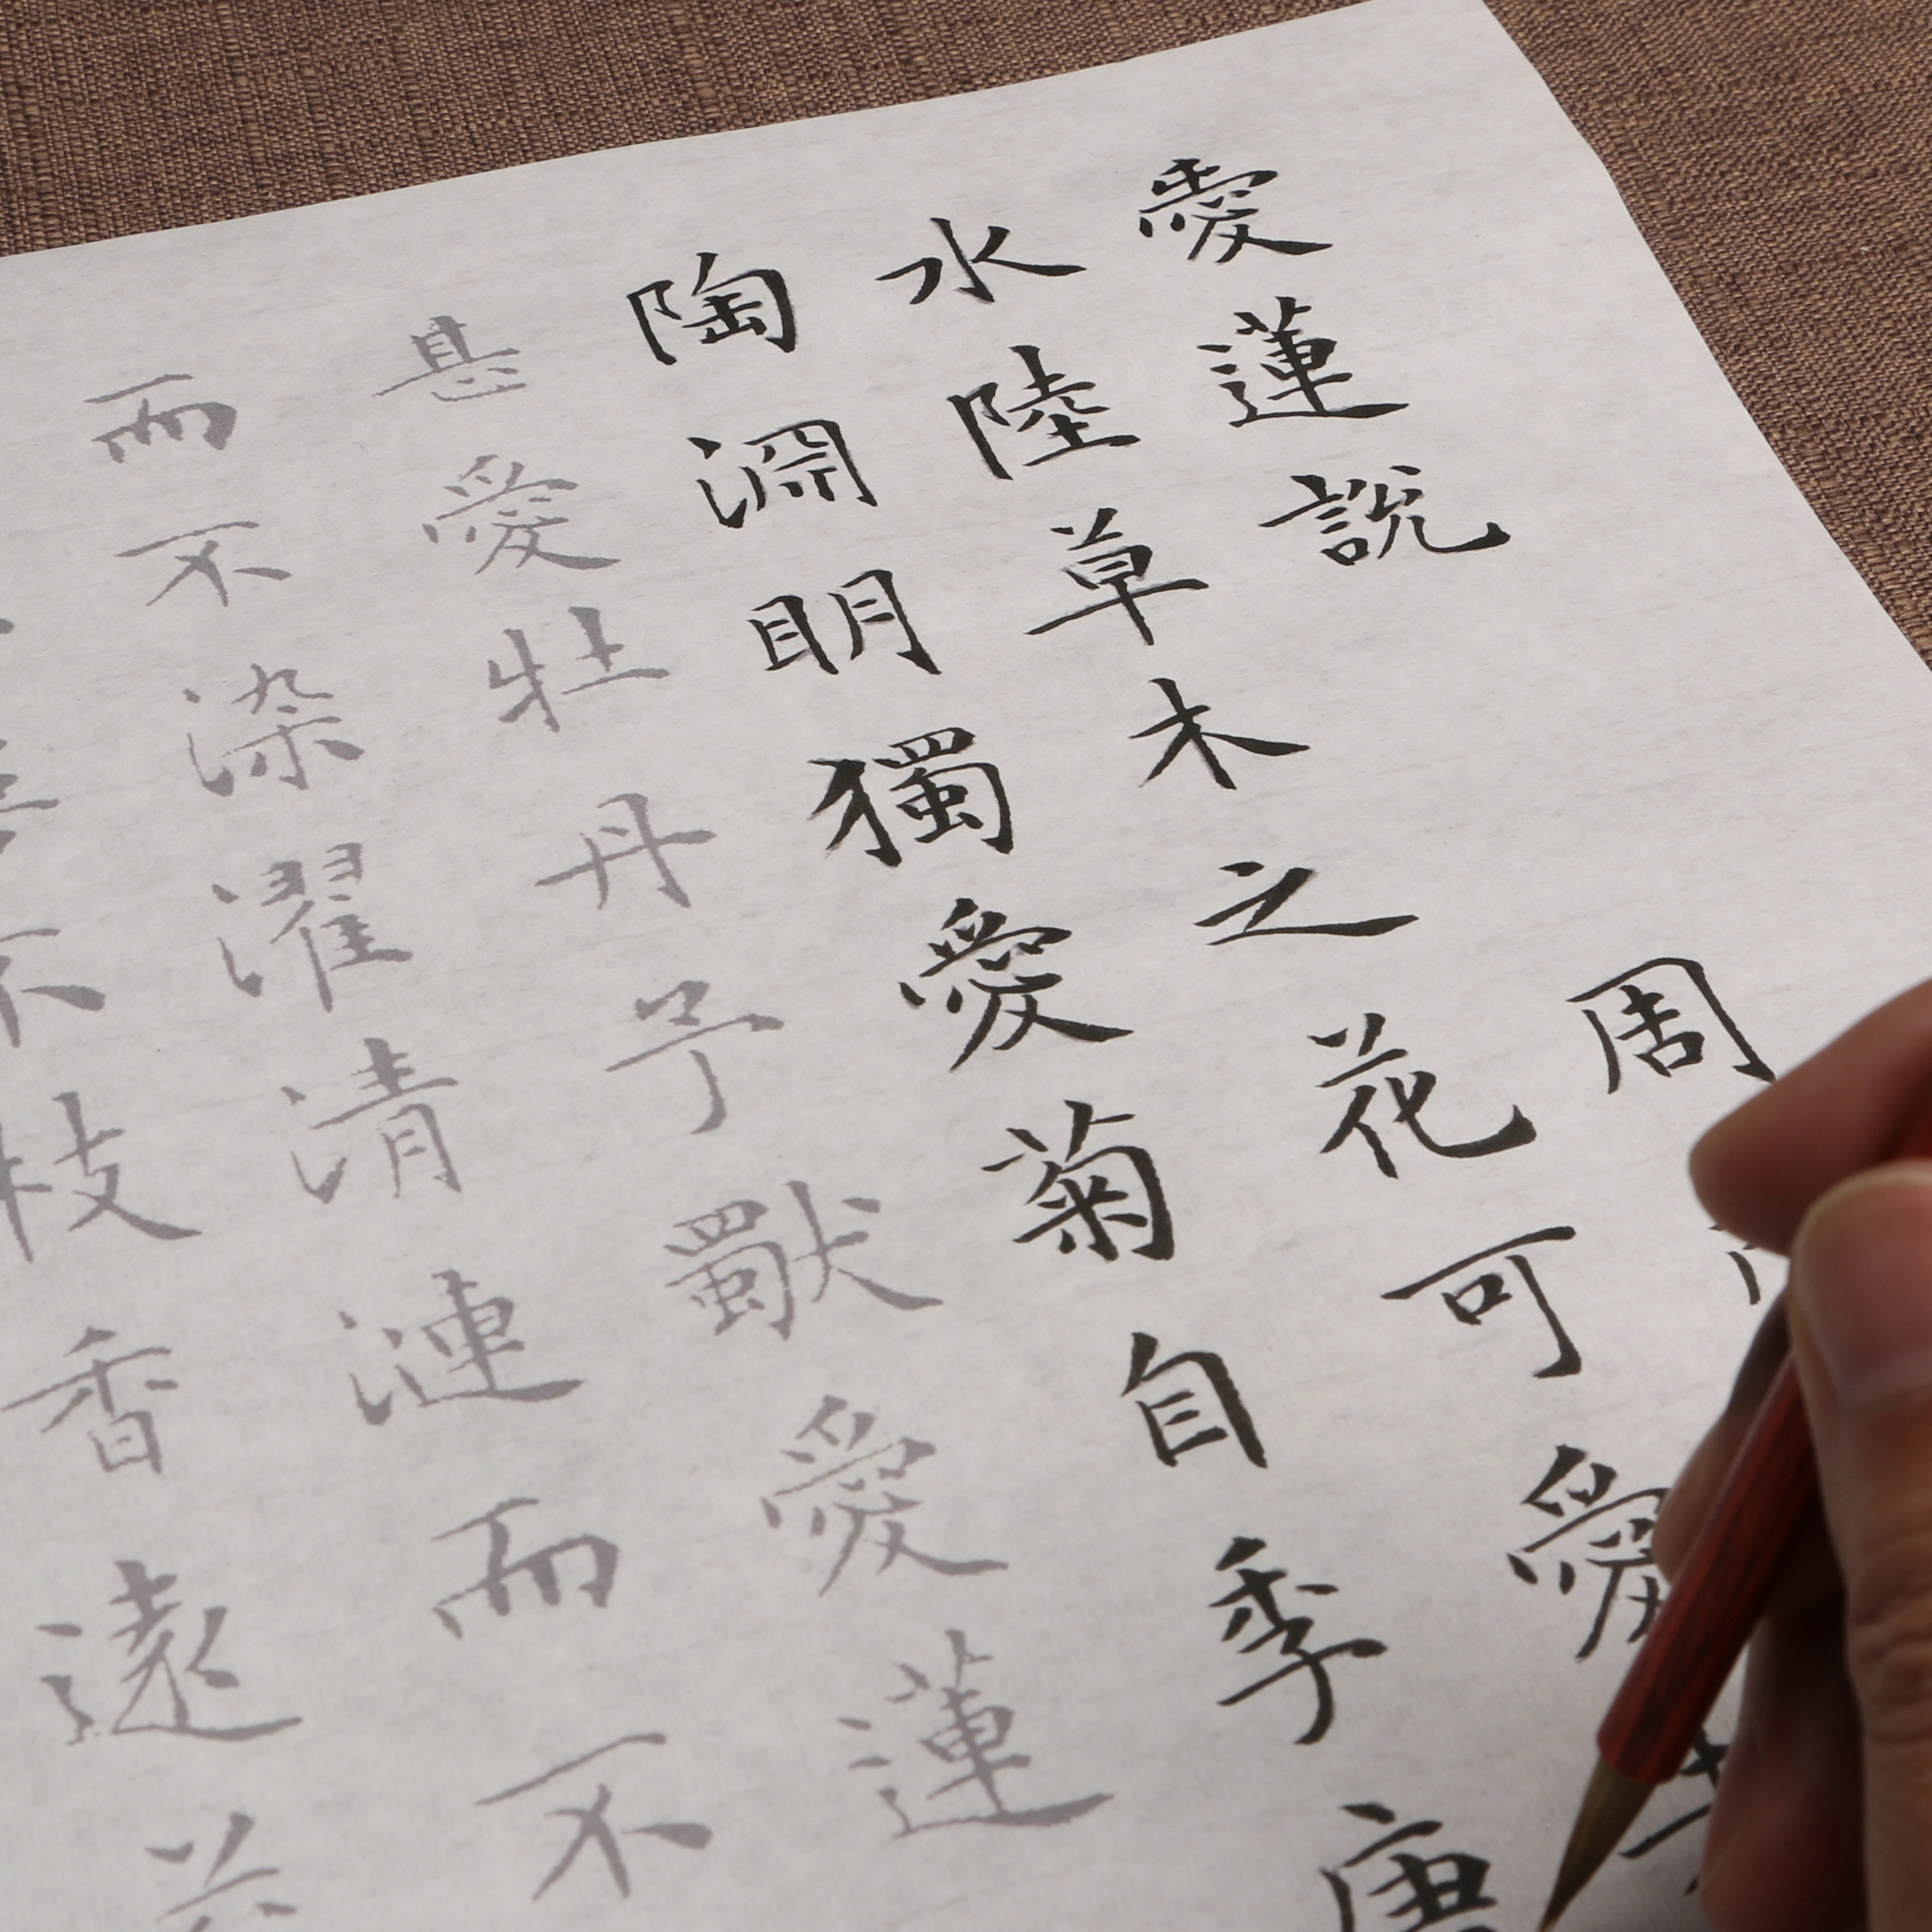 愛蓮說 周
水陸草木之花可愛
陶淵明獨愛菊自季唐
甚愛牡丹予獨愛蓮
而不染濯清漣而不
枝香遠益